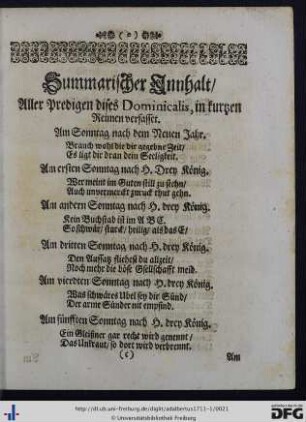 Summarischer Innhalt/
Aller Predigen dises Dominicalis, in kurtzen
Reimen verfasset.
Am Sonntag nach dem Neuen Jahr.
Brauch wohl die dir gegebne Zeit/
Es ligt dir dran dein Seeligkeit.
Am ersten Sonntag nach H. Drey König.
Wer meint im Guten still zu stehn/
Auch unvermerckt zuruck thut gehn.
Am andern Sonntag nach H. drey König.
Kein Buchstab ist im A B C.
So schwär/ starck/ heilig/ als das E/
Am dritten Sonntag nach H. drey König.
Den Aussatz fliehest du allzeit/
Noch mehr die böse Gsellschafft meid.
Am vierdten Sonntag nach H. drey König.
Was schwäres Ubel sey die Sünd/
Der arme Sünder nit empfind.
Am fünfften Sonntag nach H. drey König.
Ein Gleißner gar recht wird genennt/
Das Unkraut/ so dort wird verbrennt.
(c) Am
http://dl.ub.uni-freiburg.de/diglit/adalbertus1711-1/0021
© Universitätsbibliothek Freiburg
gefördert durch die
DFG